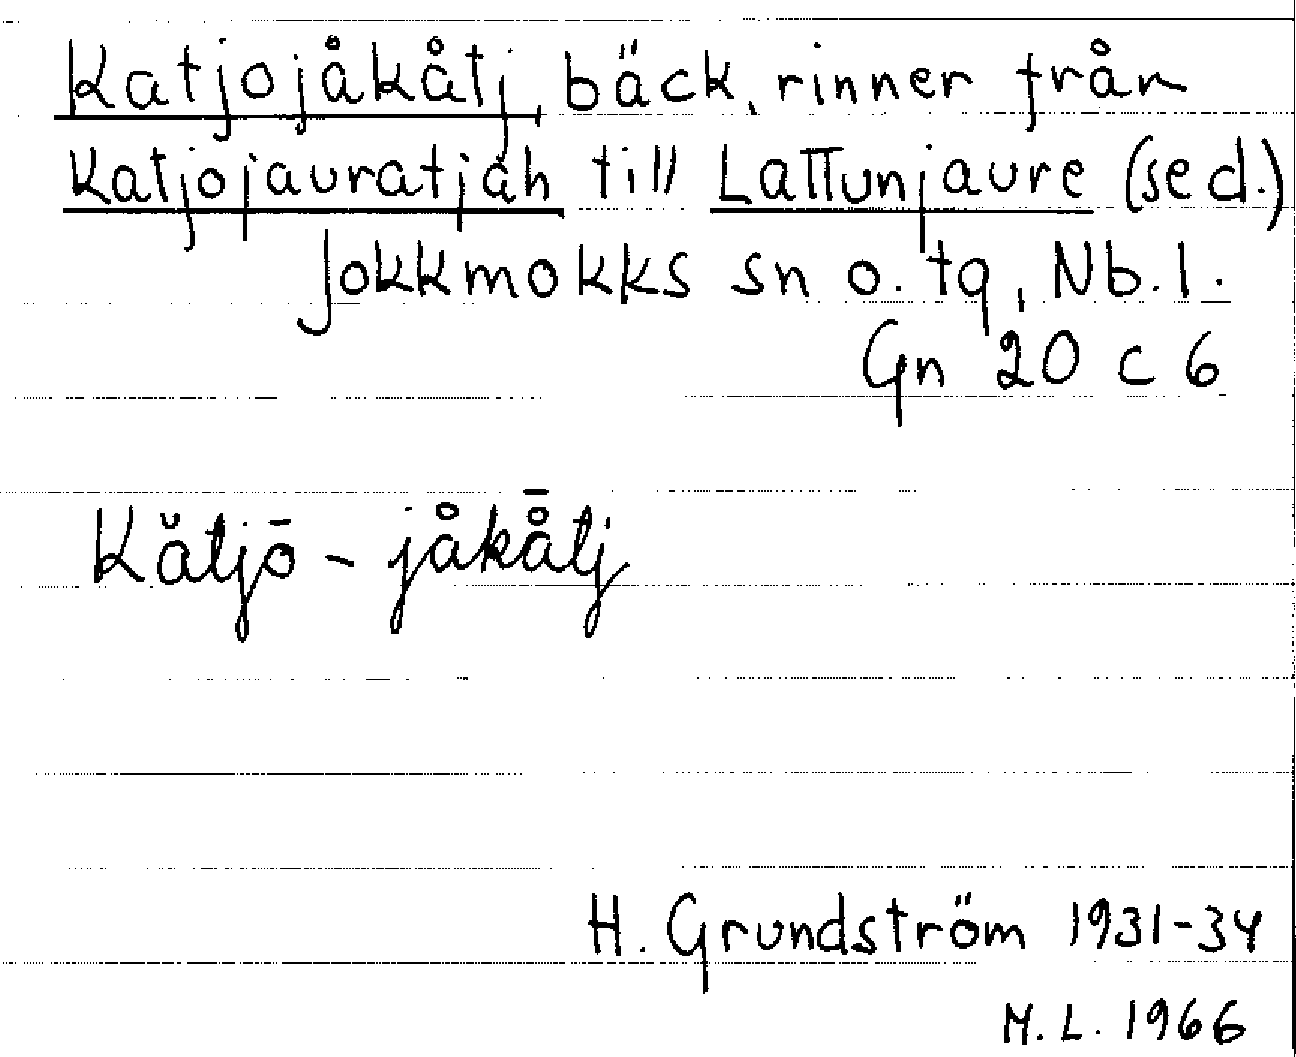 Katjojåkåtj, bäck, rinner från
Katjojauratjah till Lattunjaure (sed.)
Jokkmokks sn o. tg, Nb. l.
Gn 20 c 6
Kătjō - jåkå̄tj
H. Grundström 1931-34
M. L. 1966